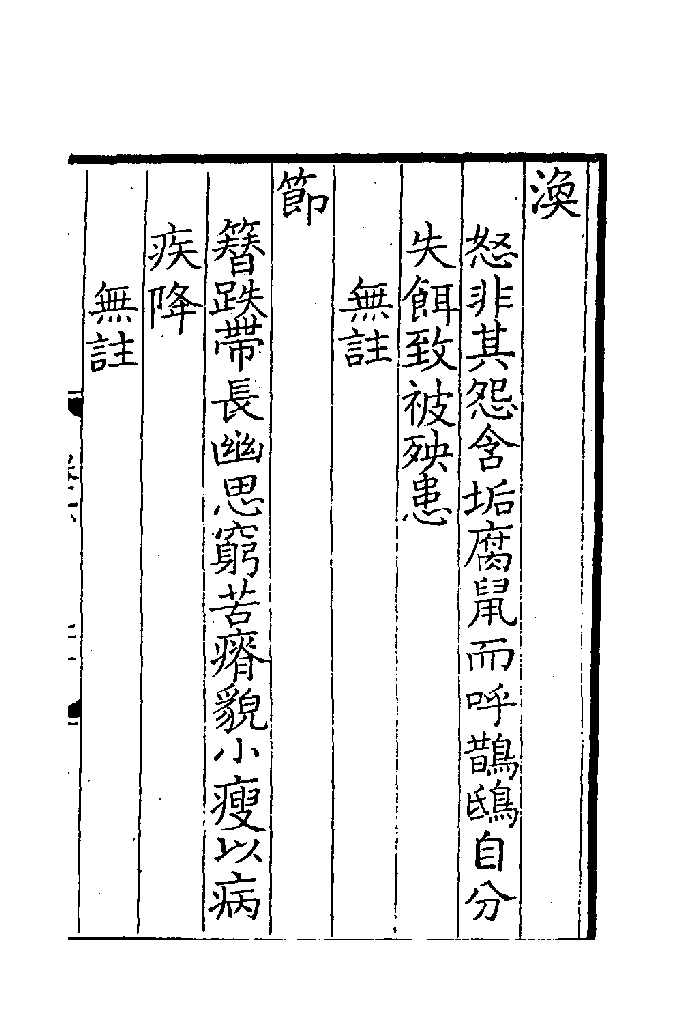 渙
怒非其怨含垢腐鼠而呼鵲鴟自分
失餌致被殃患
無註
節
簪跌帶長幽思窮苦瘠貌小瘦以病
疾降
無註